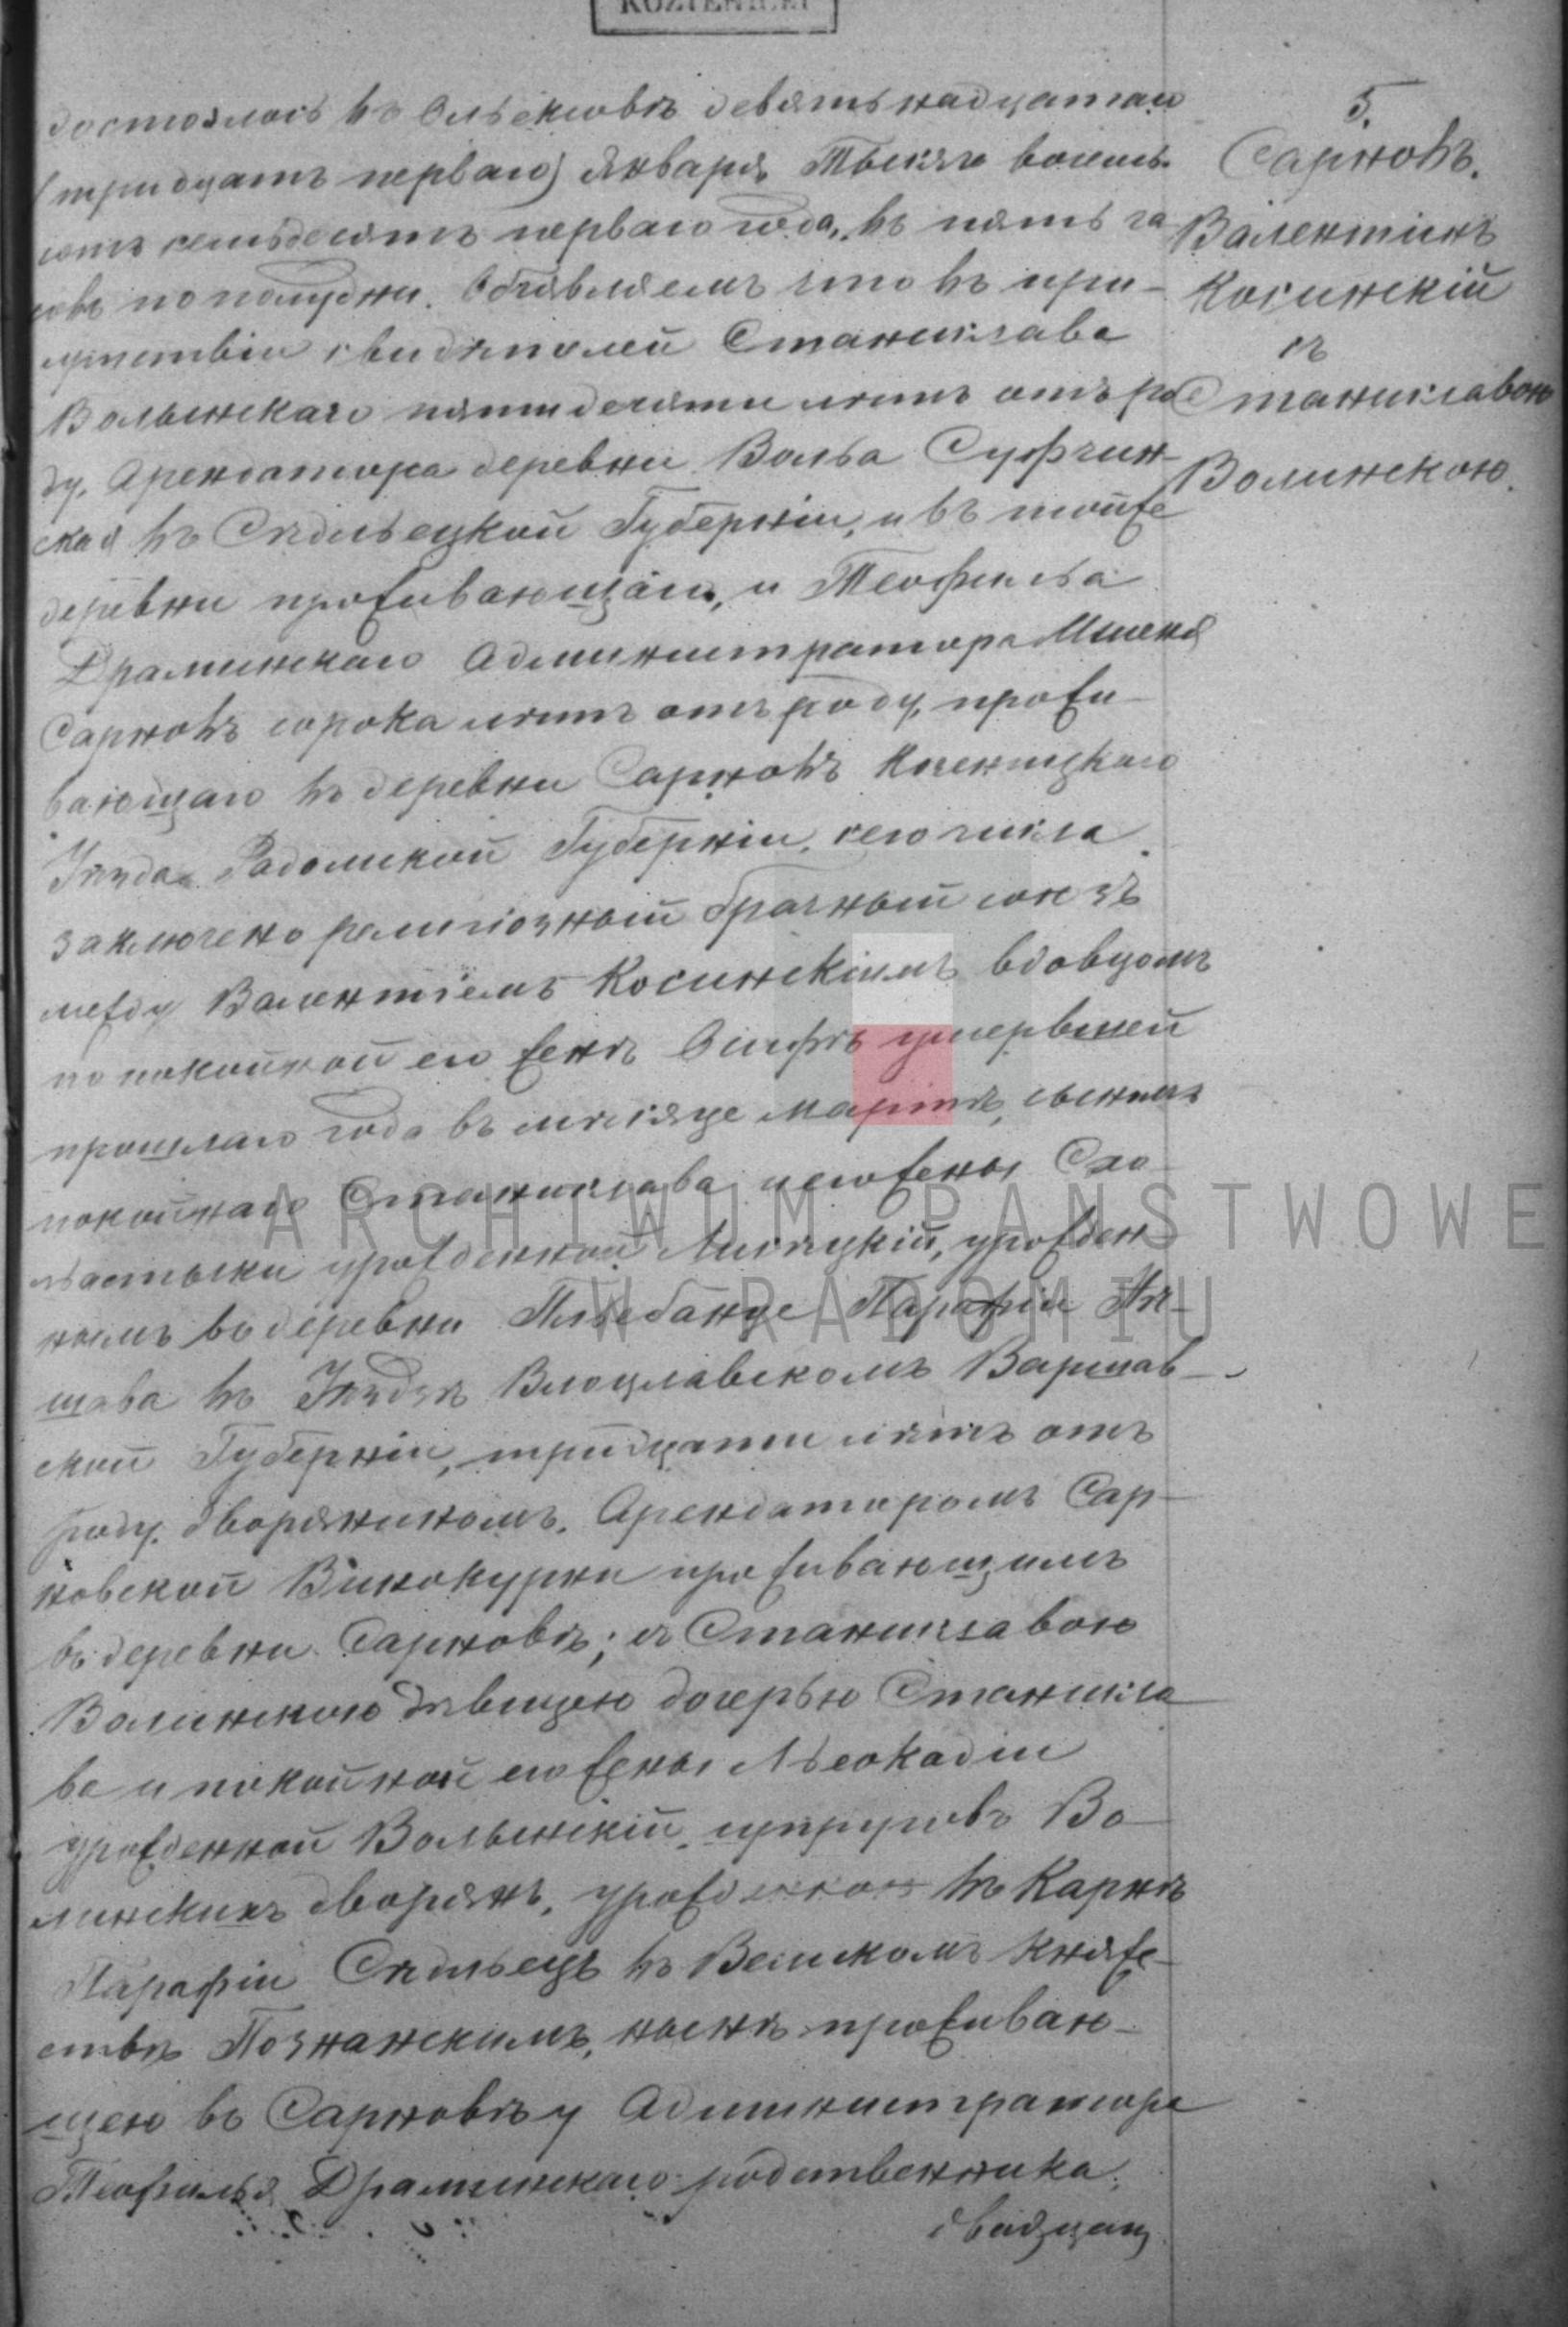 KOZIENICKI
5.
Сарновъ.
Валентинъ
Косинскій
съ
Станиславою
Волинскою.
состоялось въ Олексовѣ девятьнадцатаго
(тридцать перваго) Января Тысяча восемь
сотъ семьдесятъ перваго года, въ пять ча
совъ пополудни. Объявляемъ что въ при-
сутствіи свидѣтелей Станислава
Волынскаго пятидесяти лѣтъ отъ ро
ду, Арендатора деревни Волья Суфчин-
ская въ Сѣдльецкой Губерніи, и въ тойже
деревни проживающаго, и Теофиля
Драминскаго Администратора Имѣнія
Сарновъ сорока лѣтъ отъ роду, прожи-
вающаго въ деревни Сарновъ Козеницкаго
Уѣзда Радомской Губерніи, сего числа
заключено религіозный брачный союзъ
между Валентіемъ Косинскимъ вдовцомъ
по покойной его женѣ Осифѣ умершей
прошлаго года въ мѣсяце Мартѣ, сыномъ
покойнаго Станислава и его жены Схо-
льастыки урожденной Лисѣцкій, урожден-
нымъ въ деревни Пльебанце Парафіи
шава въ Уѣздѣ Влоцлавскомъ Варшав-
ской Губерніи, тридцати лѣтъ отъ
роду, дворяниномъ, Арендаторомъ Сар-
новской Винокурни проживающимъ
въ деревни Сарновѣ; съ Станиславою
Волинскою дѣвицею дочерью Станисла
ва и покойной его жены Льеокадіи
урожденной Волынскій, супруговъ Во-
линскихъ дворянъ, урожденною въ Карнѣ
Парафіи Сѣдльецъ въ Великомъ Княже-
ствѣ Познанскимъ, нынѣ проживаю-
щею въ Сарновѣ у Администратора
Теофиля Драминскаго родственника,
двадцать
ARCHIWUM PAŃSTWOWE
W RADOMIU